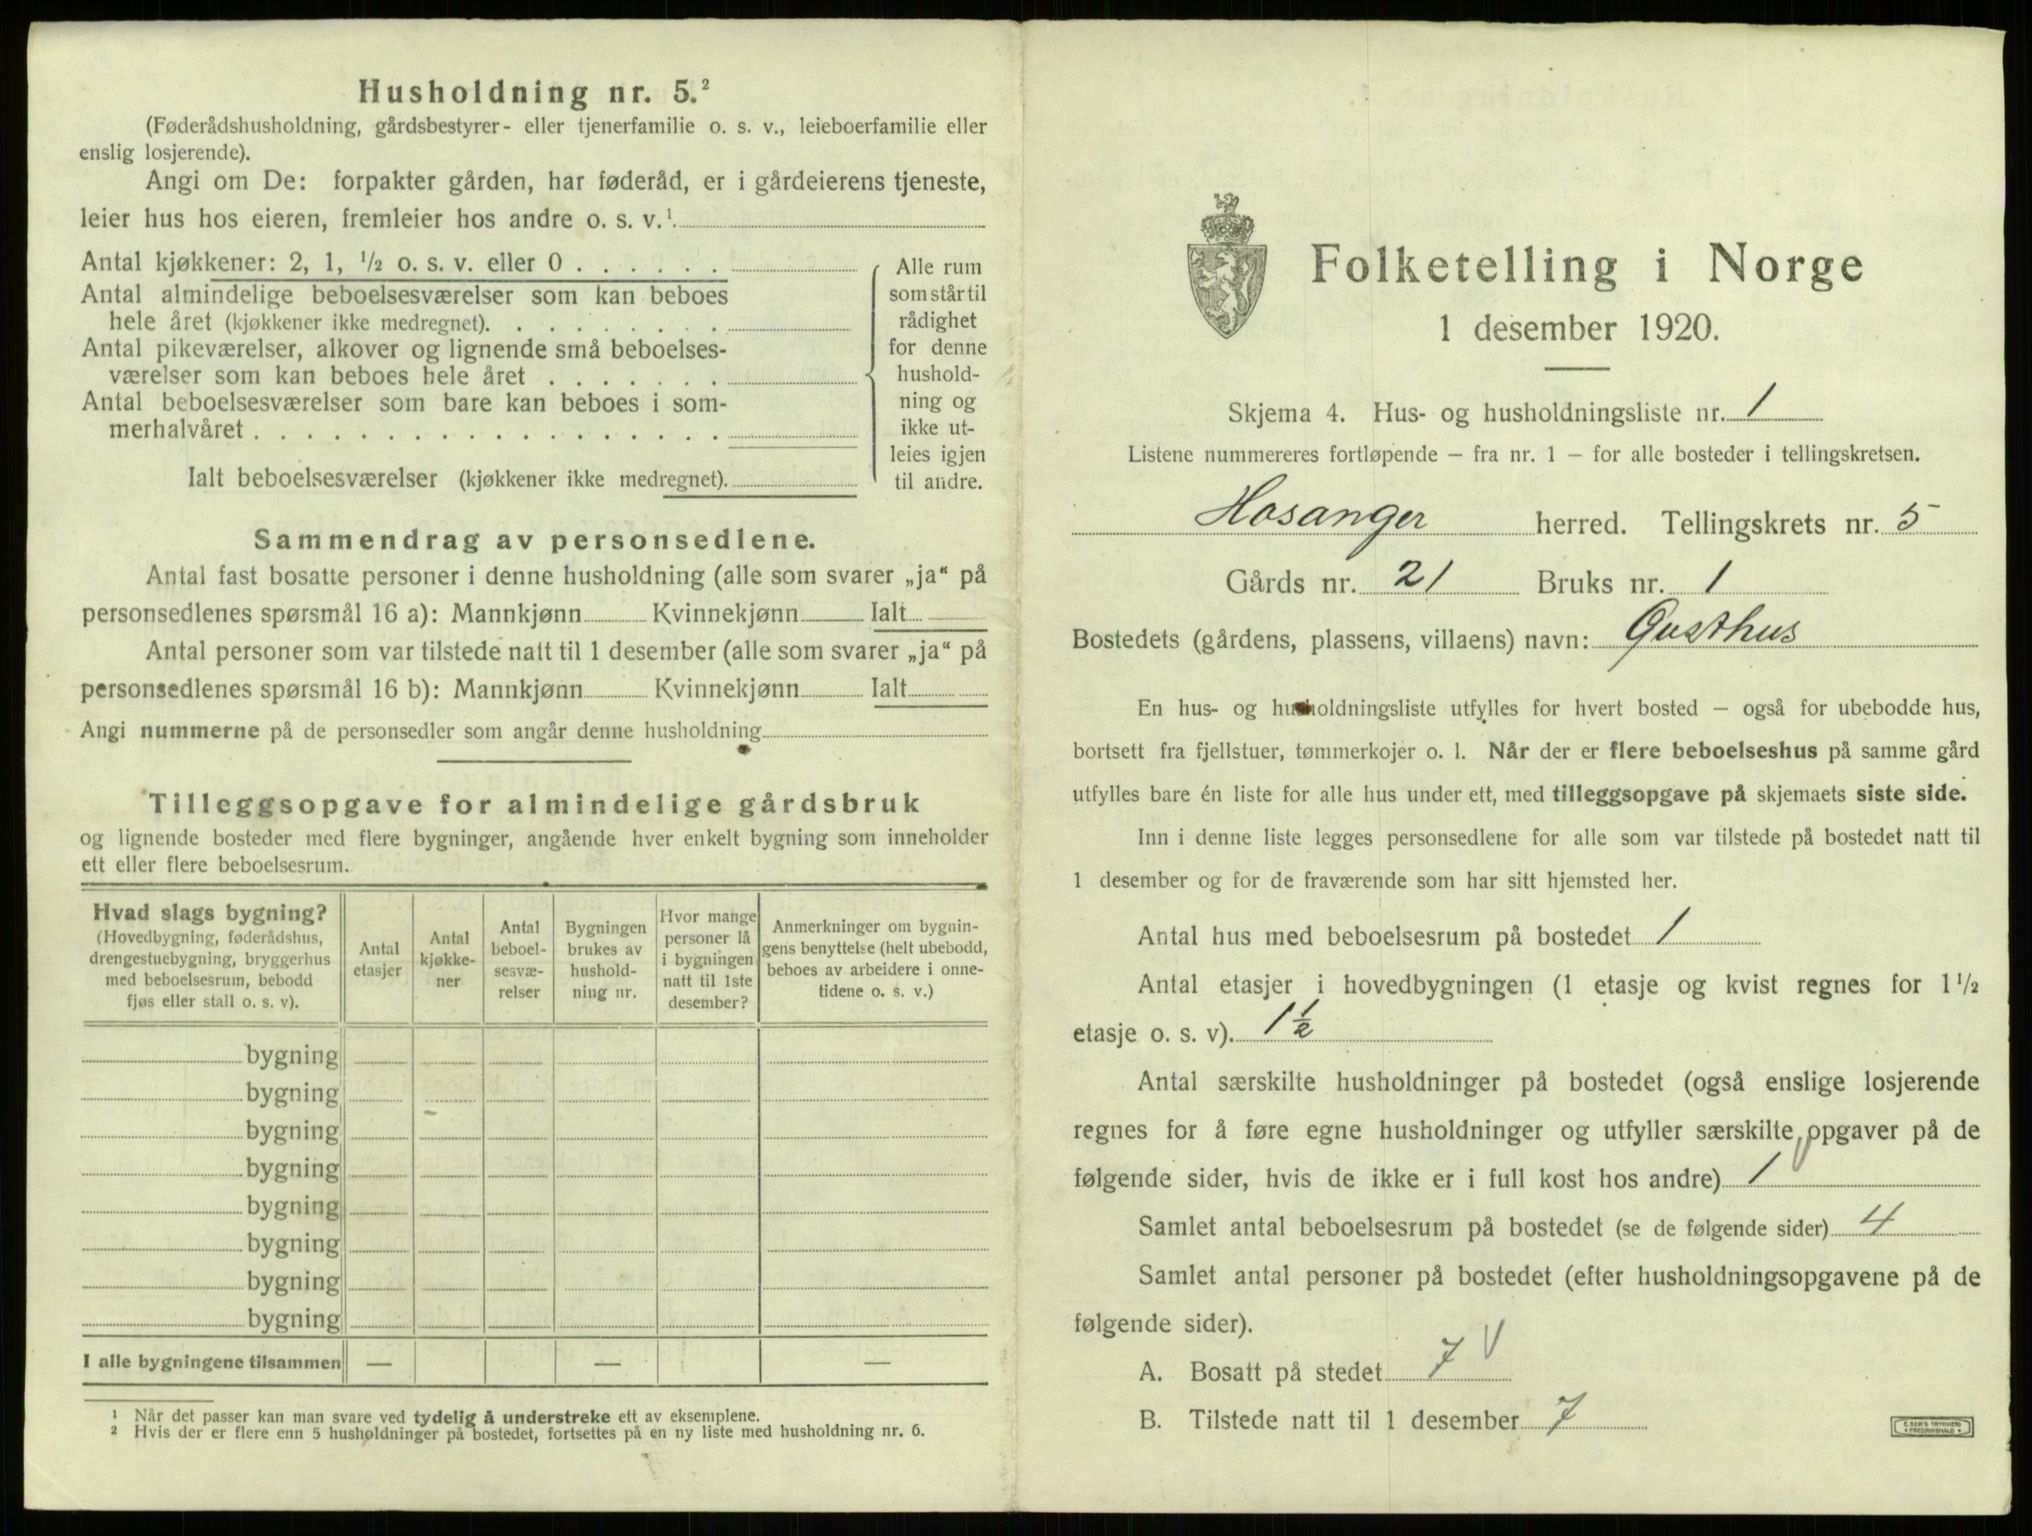 Husholdning nr. 5.²
(Føderådshusholdning, gårdsbestyrer- eller tjenerfamilie o. s. v., leieboerfamilie eller
enslig losjerende).
Angi om De: forpakter gården, har føderåd, er i gårdeierens tjeneste,
leier hus hos eieren, fremleier hos andre o. s. v.¹.
Antal kjøkkener: 2, 1, ½ o. s. v. eller 0 . . . . . .
Antal almindelige beboelsesværelser som kan beboes
hele året (kjøkkener ikke medregnet). . . . . . . . .
Antal pikeværelser, alkover og lignende små beboelses-
værelser som kan beboes hele året . . . . . . .
Antal beboelsesværelser som bare kan beboes i som-
merhalvåret . . . . . . . . . . . . . . . . . .
Ialt beboelsesværelser (kjøkkener ikke medregnet).
Alle rum
som står til
rådighet
for denne
hushold-
ning og
ikke ut-
leies igjen
til andre.
Sammendrag av personsedlene.
Antal fast bosatte personer i denne husholdning (alle som svarer „ja“ på
personsedlenes spørsmål 16 a): Mannkjønn Kvinnekjønn Ialt
Antal personer som var tilstede natt til 1 desember (alle som svarer „ja“ på
personsedlenes spørsmål 16 b): Mannkjønn Kvinnekjønn Ialt
Angi nummerne på de personsedler som angår denne husholdning
Tilleggsopgave for almindelige gårdsbruk
og lignende bosteder med flere bygninger, angående hver enkelt bygning som inneholder
ett eller flere beboelsesrum.
Hvad slags bygning?
(Hovedbygning, føderådshus,
drengestuebygning, bryggerhus
med beboelsesrum, bebodd
fjøs eller stall o. s. v).
Antal
etasjer
Antal
kjøkke-
ner
Antal
beboel-
sesvæ-
relser
Bygningen
brukes av
hushold-
ning nr.
Hvor mange
personer lå
i bygningen
natt til 1ste
desember?
Anmerkninger om bygnin-
gens benyttelse (helt ubebodd,
beboes av arbeidere i onne-
tidene o. s. v.)
bygning
bygning
bygning
bygning
bygning
bygning
bygning
bygning
I alle bygningene tilsammen — — —
¹ Når det passer kan man svare ved tydelig å understreke ett av eksemplene.
² Hvis der er flere enn 5 husholdninger på bostedet, fortsettes på en ny liste med husholdning nr. 6.
Folketelling i Norge
1 desember 1920.
Skjema 4. Hus- og husholdningsliste nr. 1
Listene nummereres fortløpende – fra nr. 1 – for alle bosteder i tellingskretsen.
Hosanger herred. Tellingskrets nr. 5
Gårds nr. 21 Bruks nr. 1
Bostedets (gårdens, plassens, villaens) navn: Qusthus
En hus- og husholdningsliste utfylles for hvert bosted – også for ubebodde hus,
bortsett fra fjellstuer, tømmerkojer o. l. Når der er flere beboelseshus på samme gård
utfylles bare én liste for alle hus under ett, med tilleggsopgave på skjemaets siste side.
Inn i denne liste legges personsedlene for alle som var tilstede på bostedet natt til
1 desember og for de fraværende som har sitt hjemsted her.
Antal hus med beboelsesrum på bostedet 1
Antal etasjer i hovedbygningen (1 etasje og kvist regnes for 1½
etasje o. s. v). 1½
Antal særskilte husholdninger på bostedet (også enslige losjerende
regnes for å føre egne husholdninger og utfyller særskilte opgaver på de
følgende sider, hvis de ikke er i full kost hos andre) 1
Samlet antal beboelsesrum på bostedet (se de følgende sider) 4
Samlet antal personer på bostedet (efter husholdningsopgavene på de
følgende sider).
A. Bosatt på stedet 7
B. Tilstede natt til 1 desember 7